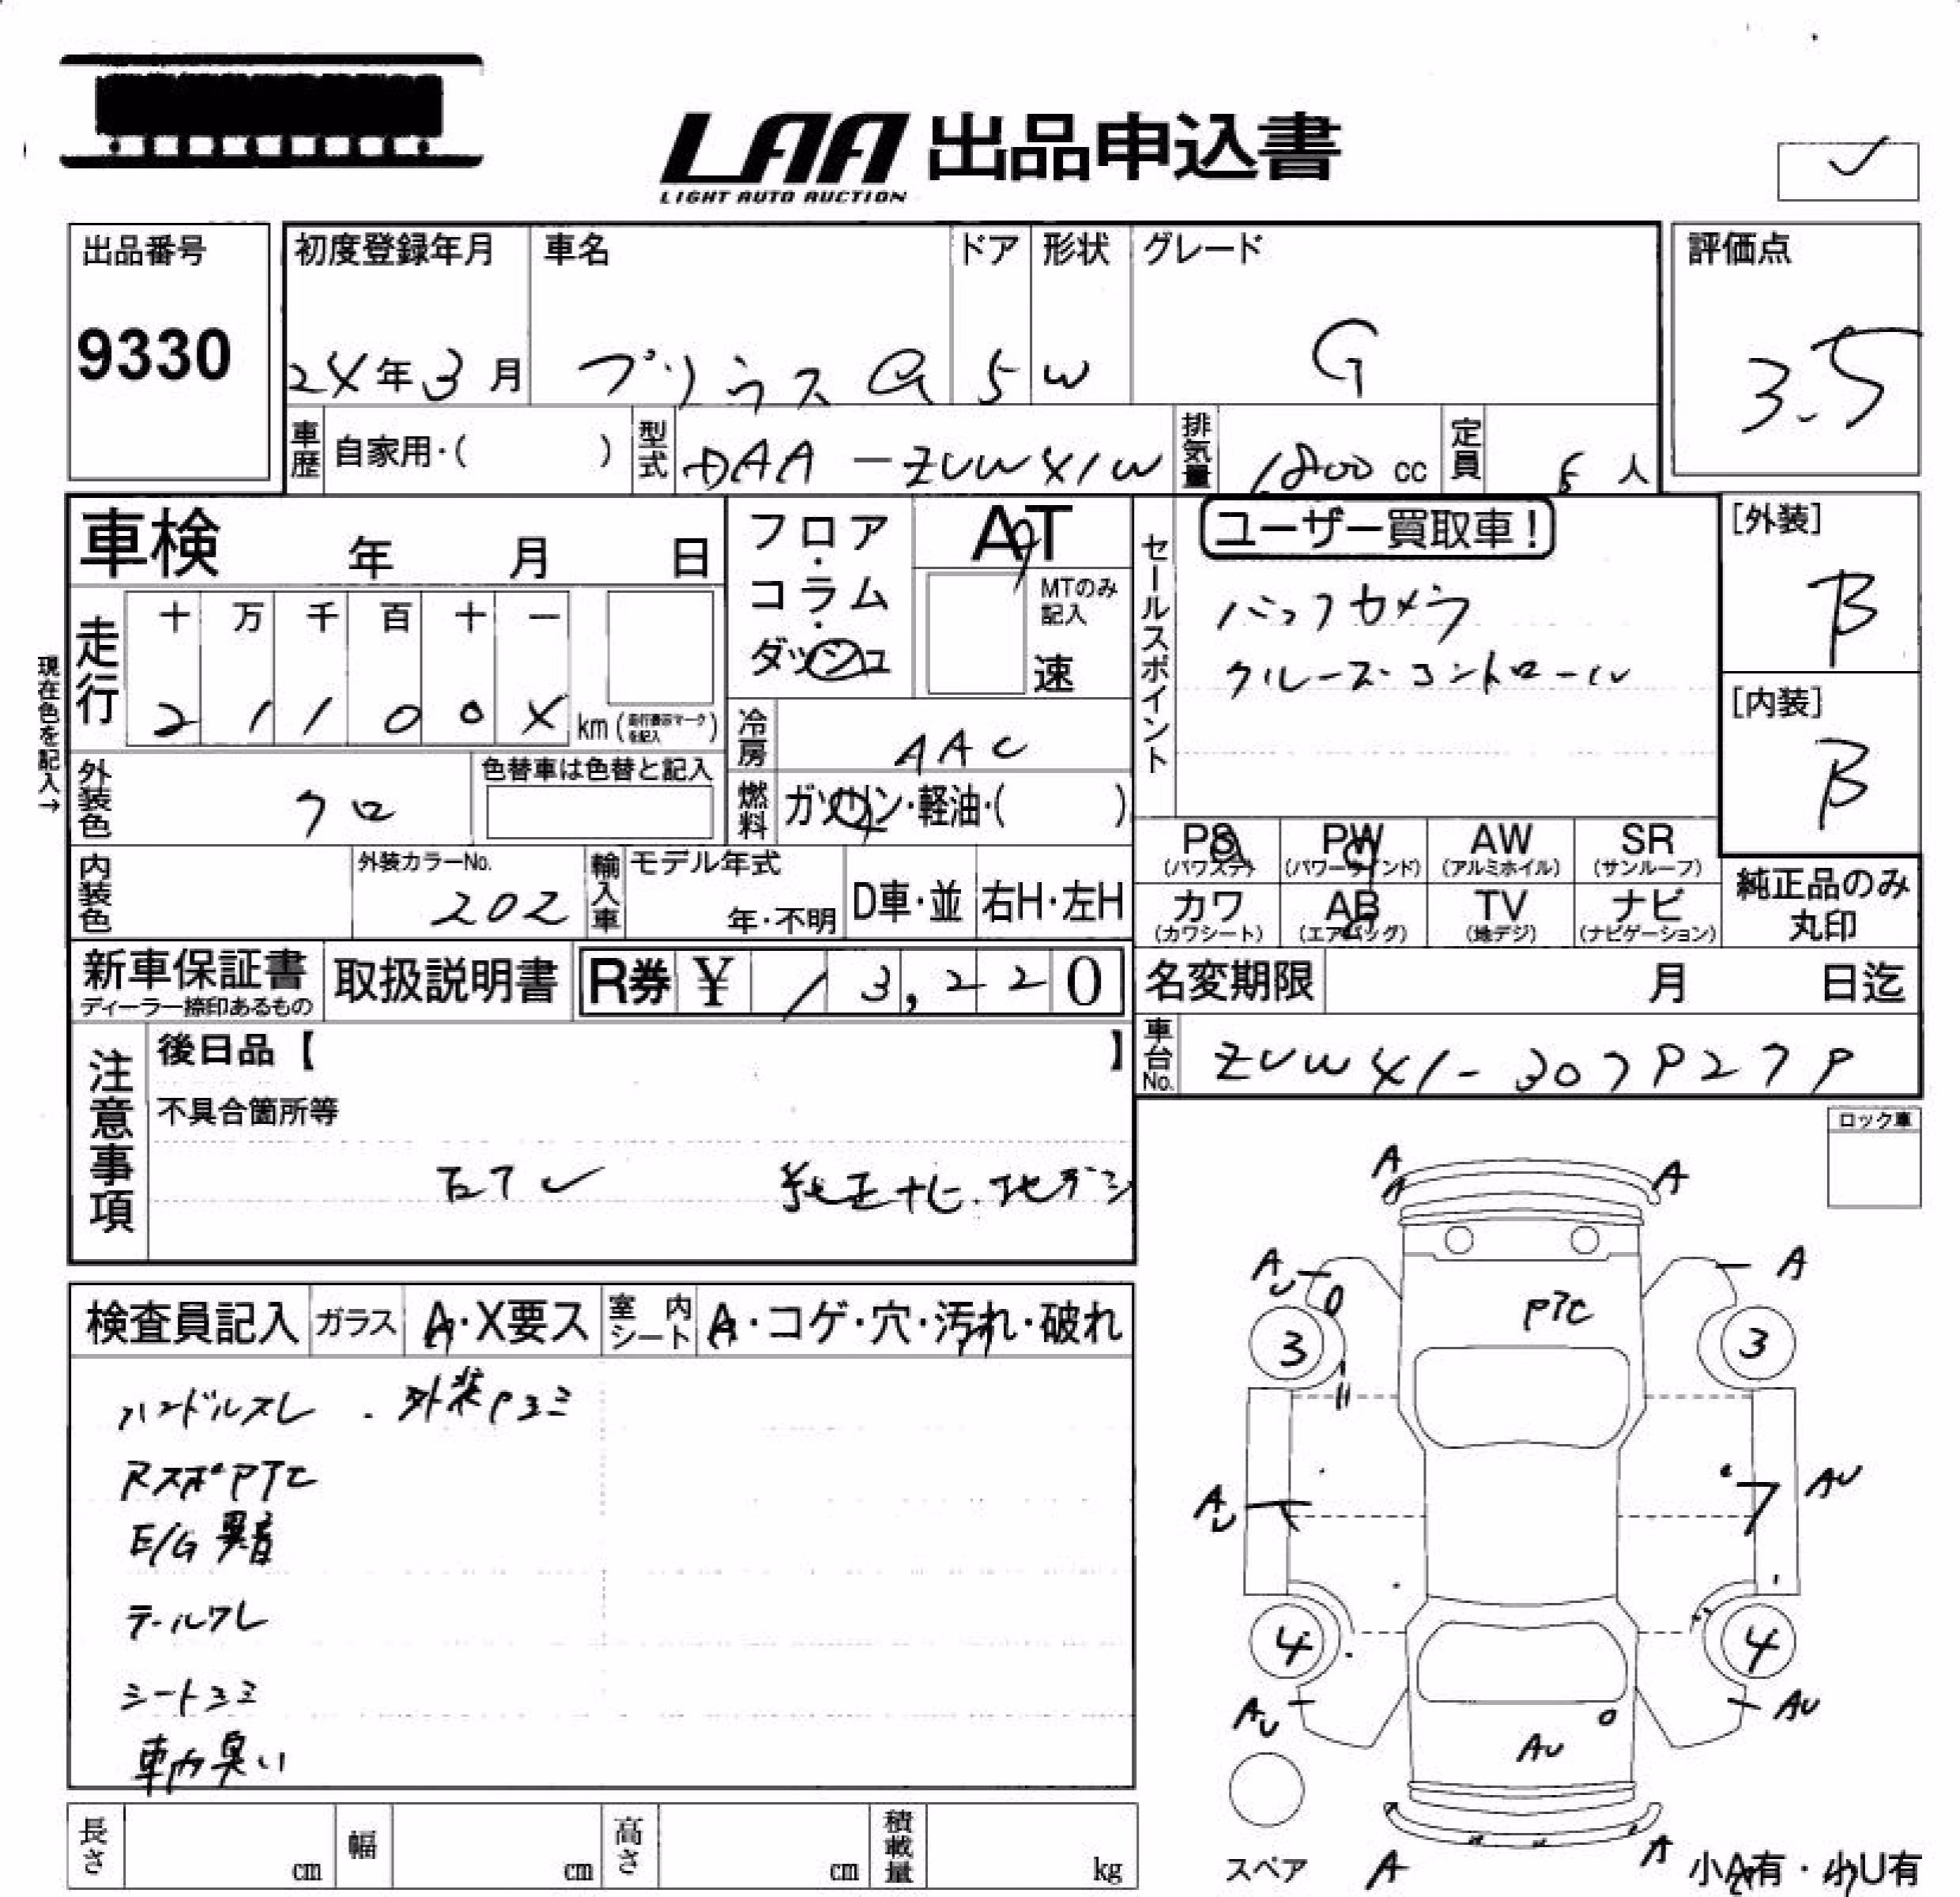 LAA 出品申込書
LIGHT AUTO AUCTION
出品番号
9330
初度登録年月
24年3月
車名
プリウスα
ドア
5
形状
W
グレード
G
評価点
3.5
車歴
自家用・( )
型式
DAA-ZVW41W
排気量
1800 cc
定員
人
車検 年 月 日
フロア・コラム・ダッシュ
AT
MTのみ記入
速
セールスポイント
ユーザー買取車!
バックカメラ
クルーズコントロール
[外装]
B
[内装]
B
現在色を記入→
走行
十 万 千 百 十 一
2 1 1 0 0 X km (走行表示マークを記入)
冷房
AAC
外装色
クロ
色替車は色替と記入
燃料
ガソリン・軽油・( )
PS
(パワステ)
PW
(パワーウインド)
AW
(アルミホイル)
SR
(サンルーフ)
カワ
(カワシート)
AB
(エアバッグ)
TV
(地デジ)
ナビ
(ナビゲーション)
純正品のみ
丸印
内装色
外装カラーNo.
202
輸入車
モデル年式
年・不明
D車・並
右H・左H
新車保証書
ディーラー捺印あるもの
取扱説明書
R券 ¥ 13,220
名変期限 月 日迄
車台No.
注意事項
後日品【 】
不具合箇所等
純正ナビ.地デジ
ロック車
検査員記入
ガラス
A・X要ス
室内シート
A・コゲ・穴・汚れ・破れ
ハンドルスレ . 外装ヨゴミ
RスポPTC
E/G 異音
テールワレ
シートヨゴミ
車内臭い
A A
AU A
PTC
3 3
AU AU
4 4
AU AU
AU
スペア
A A
小A有・小U有
長さ cm
幅 cm
高さ cm
積載量 kg